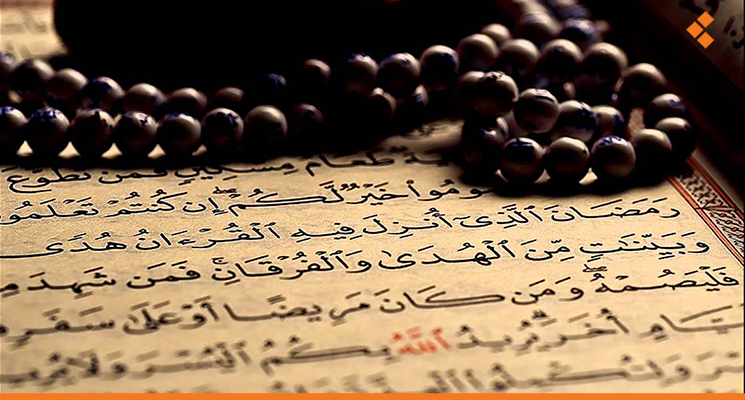 طَعَامُ مِسْكِينٍ فَمَن تَطَوَّعَ
خَيْرٌ لَّكُمْ إِن كُنتُمْ تَعْلَمُو
رَمَضَانَ ٱلَّذِىٓ أُنزِلَ فِيهِ ٱلْقُرْءَانُ هُدًى
وَبَيِّنَٰتٍ مِّنَ ٱلْهُدَىٰ وَٱلْفُرْقَانِ فَمَن شَهِدَ
فَلْيَصُمْهُ وَمَن كَانَ مَرِيضًا أَوْ عَلَىٰ سَفَرٍ
أُخَرَ يُرِيدُ ٱللَّهُ بِكُمُ ٱلْيُسْرَ وَلَا